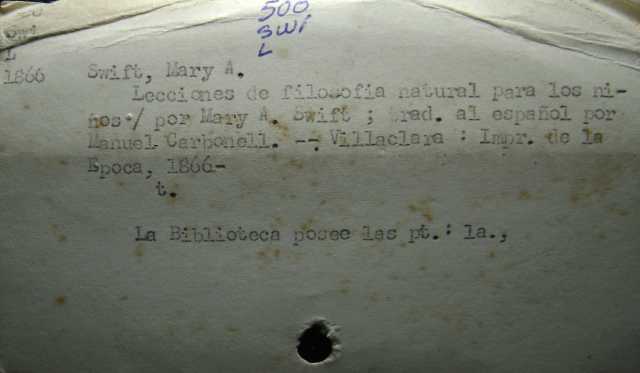 500
SWI
L
Swi
L
1866
Swift, Mary A.
Lecciones de filosofia natural para los ni-
ños / por Mary A. Swift ; trad. al español por
Manuel Carbonell. -- Villaclara : Impr. de la
Epoca, 1866-
t.
La Biblioteca posee las pt. : la.,